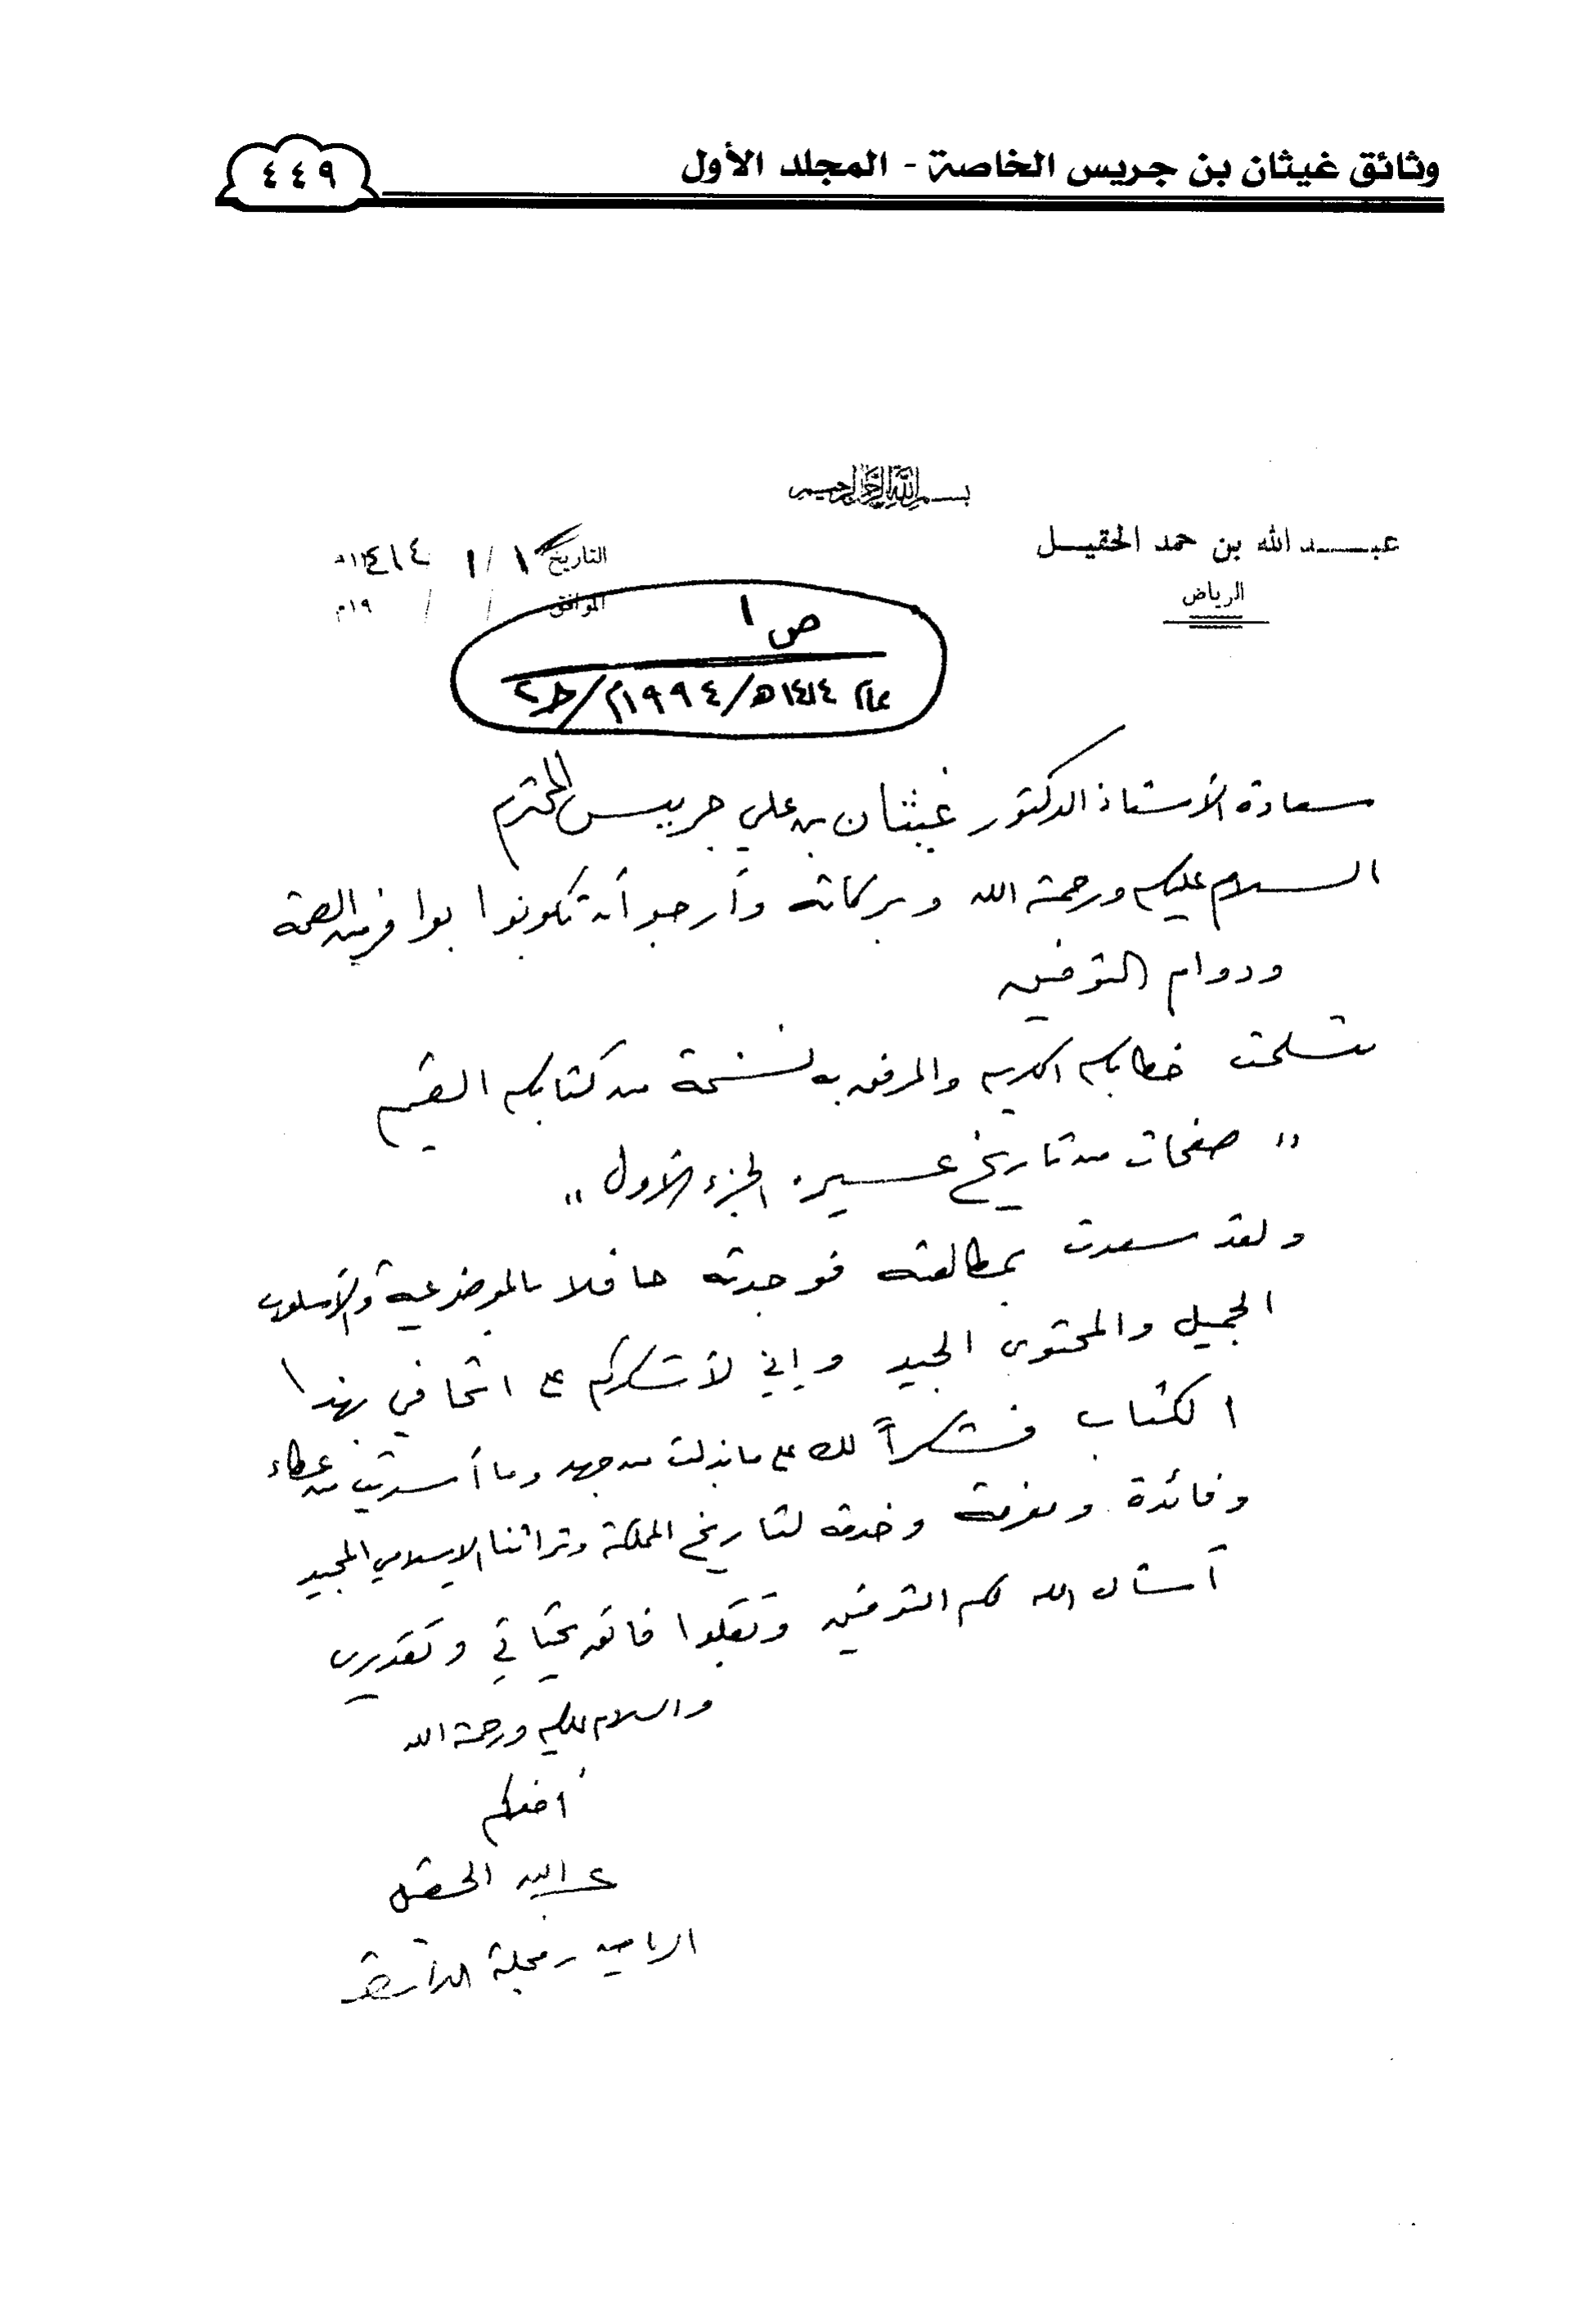 وثائق غيثان بن جريس الخاصة - المجلد الأول
٤٤٩
بسم الله الرحمن الرحيم
عبد الله بن حمد الحقيل
الرياض
التاريخ ١/١/١٤١٤هـ
الموافق / / ١٩م
ص ١
عام ١٤١٤هـ/١٩٩٤م/ط٢
سعادة الأستاذ الدكتور غيثان بن علي جريس المحترم
السلام عليكم ورحمة الله وبركاته وأرجو أن تكونوا بوافر من الصحة
ودوام التوفيق
تسلمت خطابكم الكريم والمرفق به نسخة من كتابكم القيم
" صفحات من تاريخ عسير. الجزء الأول "
ولقد سعدت بمطالعته فوجدته حافلا بالموضوعية والأسلوب
الجميل والمحتوى الجيد وإني لأشكركم على اتحافي بهذا
الكتاب فشكراً لك على ما بذلت من جهد وما أسديت من عطاء
وفائدة ومعرفة وخدمة لتاريخ المملكة وتراثنا الاسلامي المجيد
أسأل الله لكم التوفيق وتقبلوا فائق تحياتي وتقديري
والسلام عليكم ورحمة الله
أخوكم
عبد الله الحقيل
الرياض مجلة الدارة